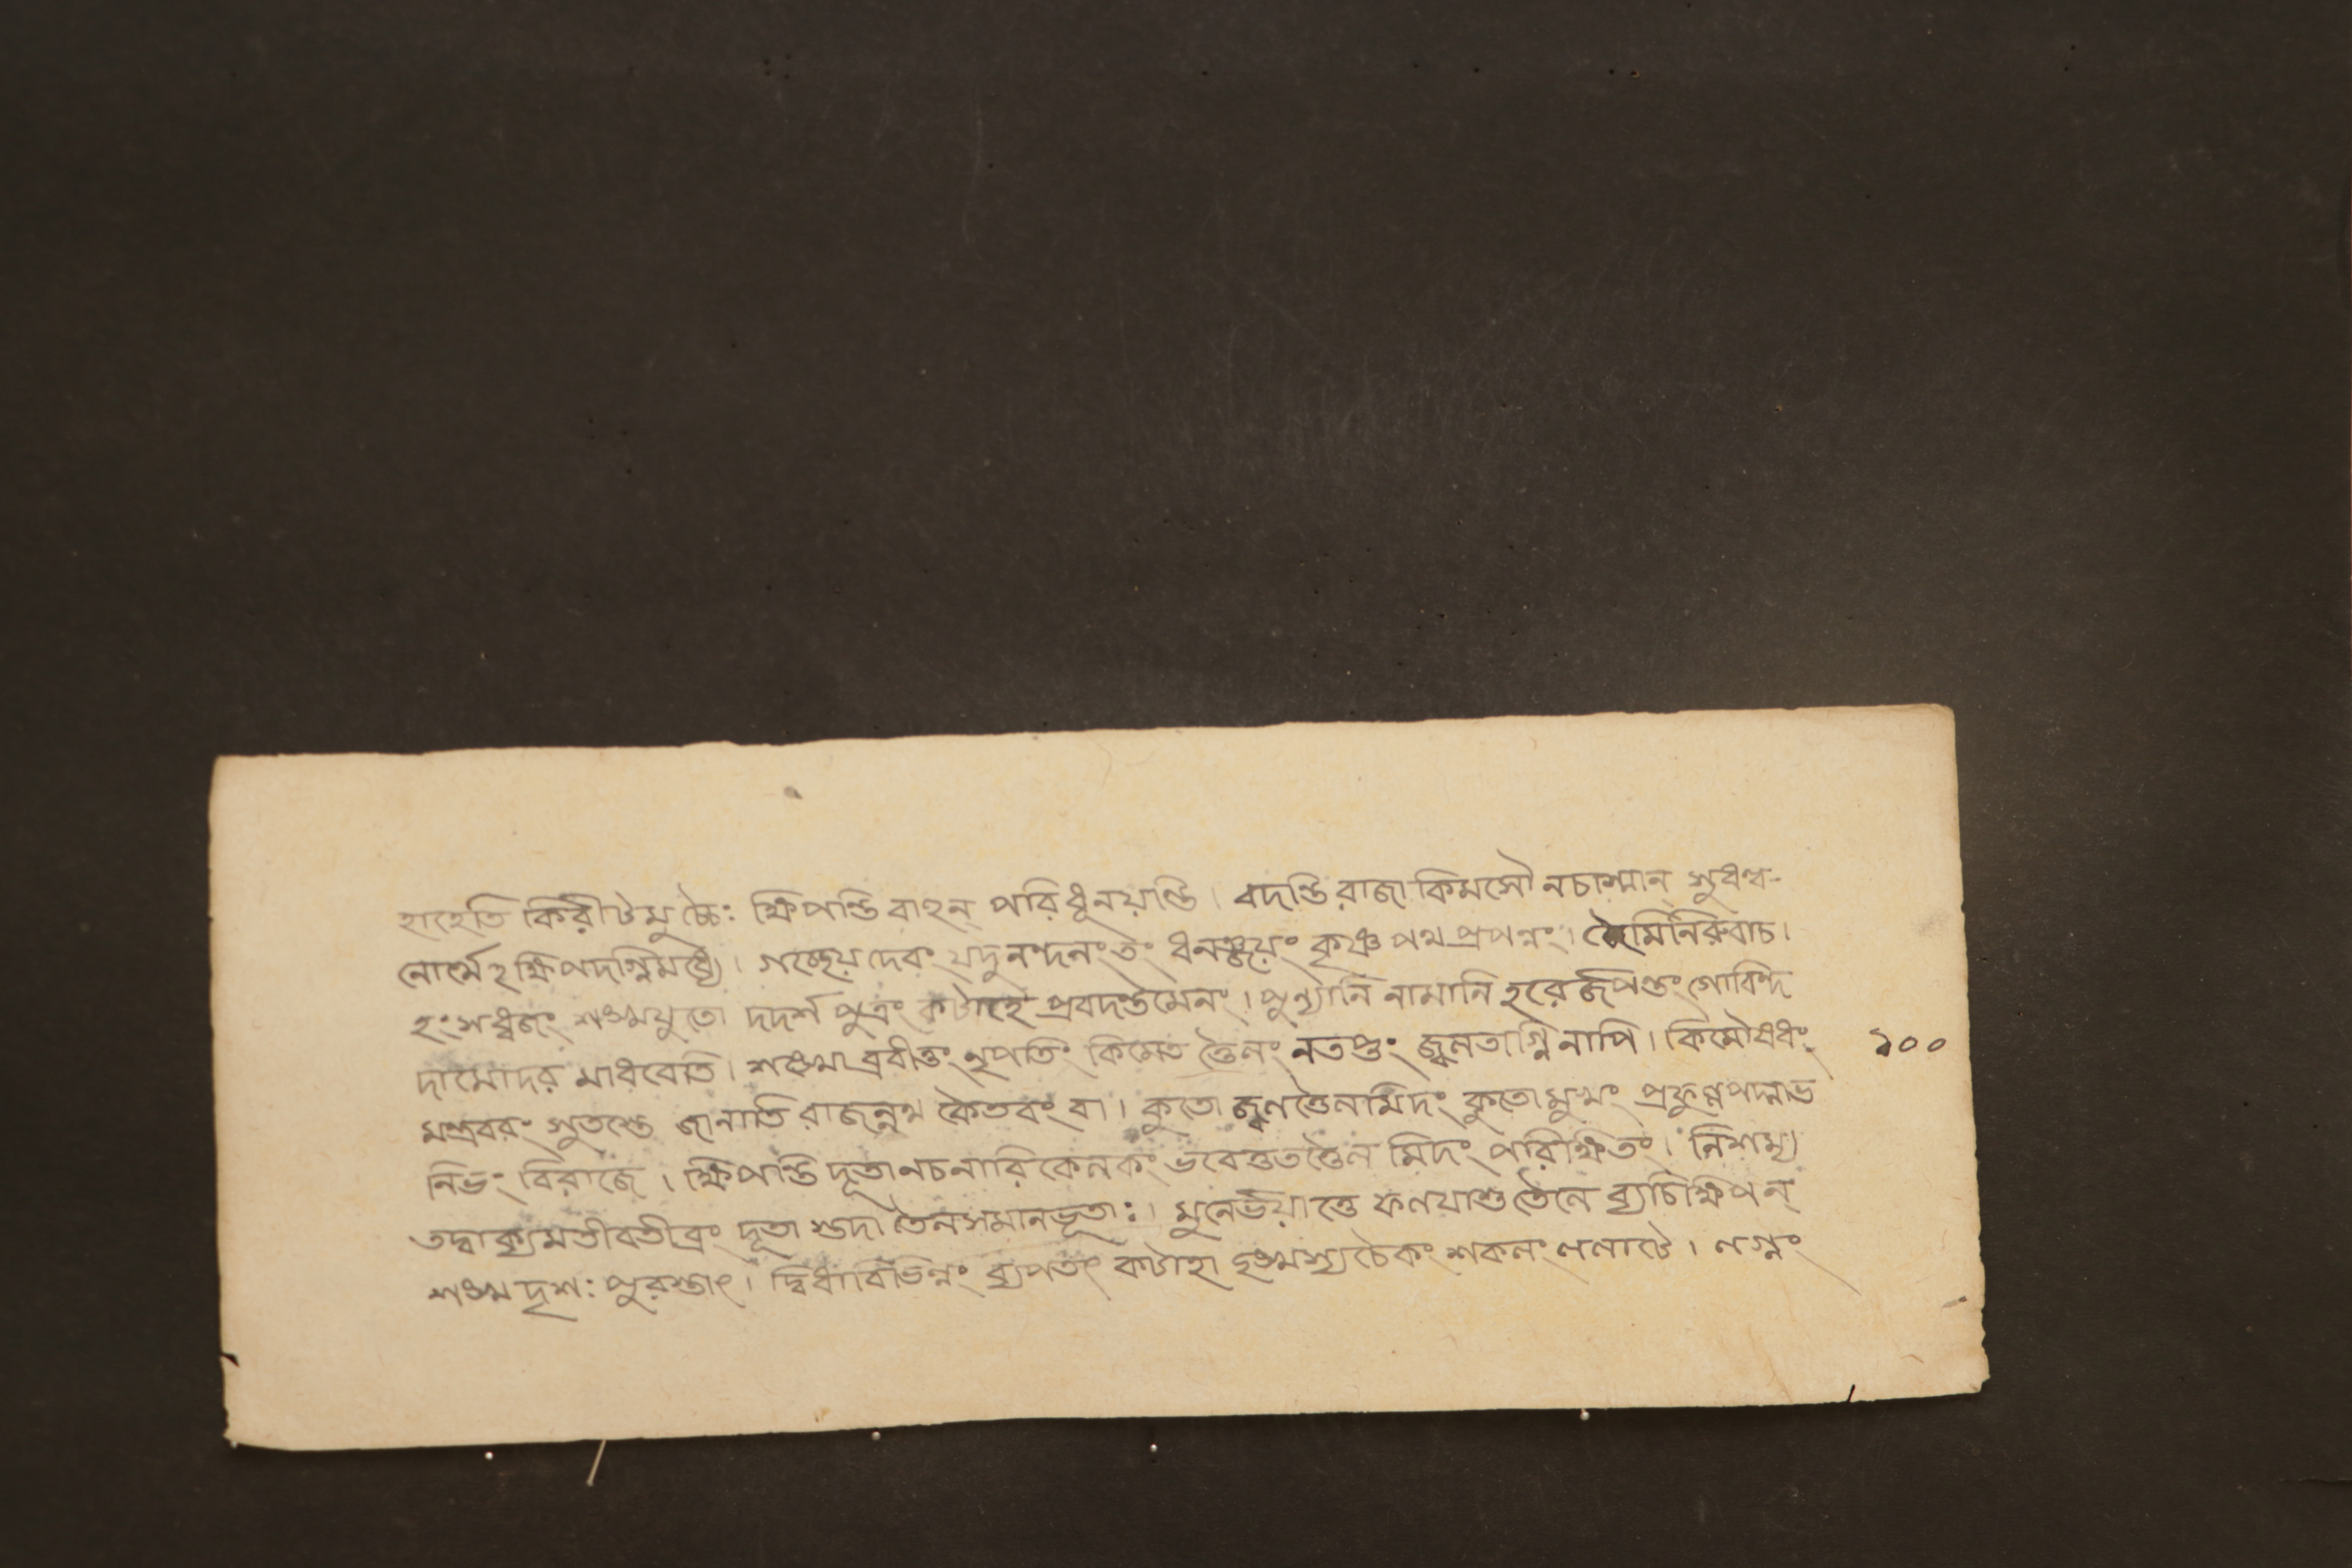 হাহেতি কিরীটমুচ্চৈঃ ক্ষিপন্তি বাহুন্ পরিধূনয়ন্তি। বদন্তি রাজা কিমসৌ নচাস্মান্ সুধন্ব-
নোর্থে ক্ষিপদগ্নিমধ্যে। গচ্ছেয় দেবং যদুনন্দনং তং ধনঞ্জয়ং কৃষ্ণ পথ প্রপন্নং। জৈমিনিরুবাচ।
হংসধ্বজঃ শঙ্খযুতো দদর্শ পুত্রং কটাহে প্রবদন্তমেনং। পুন্যানি নামানি হরের্জপন্তং গোবিন্দ
দামোদর মাধবেতি। শঙ্খোব্রবীত্তং নৃপতিং কিমেত ত্তৈলং নতপ্তং জ্বলতাগ্নি নাপি। কিমৌষধং
মন্ত্রবরং সুতস্তে জানাতি রাজন্নথ কৈতবং বা। কুতো জ্বলত্তৈলমিদং কুতোমুখং প্রফুল্লপদ্মাভ
নিভং বিরাজে। ক্ষিপন্তি দূতা নচ নারিকেলকং ভবেত্তু তত্তৈল মিদং পরীক্ষিতং। নিশম্য
তদ্বাক্যমতীবতীব্রং দূতা স্তদা তৈলসমানভূতাঃ। মুনের্ভয়াত্তে ফলমাশু তৈলে ব্যচিক্ষিপন্
শঙ্খ দৃশঃ পুরস্তাৎ। দ্বিধাবিভিন্নং ব্যপতৎ কটাহা চ্ছঙ্খস্যচৈকং শকলং ললাটে। লগ্নং
১০০